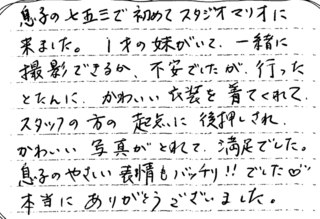 息子の七五三で初めてスタジオマリオに
来ました。1才の妹がいて、一緒に
撮影できるか、不安でしたが、行った
とたんに、かわいい衣装を着てくれて、
スタッフの方の起点に後押しされ、
かわいい写真がとれて、満足でした。
息子のやさしい表情もバッチリ!!でした♡
本当にありがとうございました。